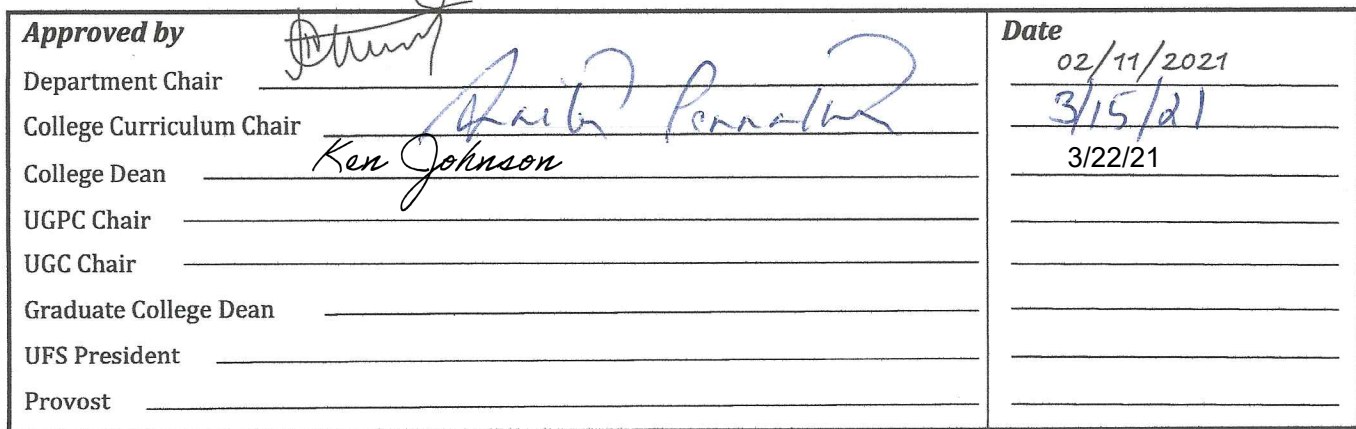 Approved by Date
Department Chair 02/11/2021
College Curriculum Chair 3/15/21
College Dean Ken Johnson 3/22/21
UGPC Chair
UGC Chair
Graduate College Dean
UFS President
Provost